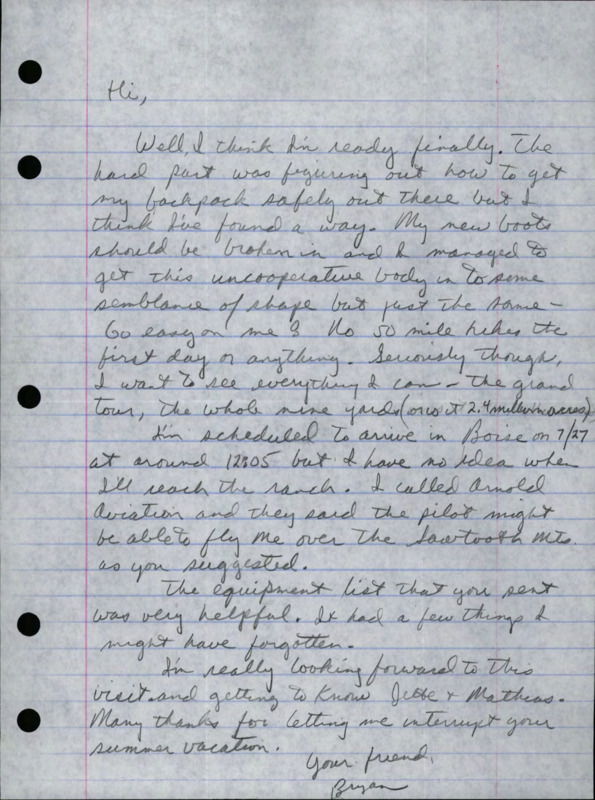 Hi,
Well, I think I'm ready finally. The
hard part was figuring out how to get
my backpack safely out there but I
think I've found a way. My new boots
should be broken in and I managed to
get this uncooperative body in to some
semblance of shape but just the same -
Go easy on me? No 50 mile hikes the
first day or anything. Seriously though,
I want to see everything I can - the grand
tour, the whole nine yards (or is it 2.4 million acres)
I'm scheduled to arrive in Boise on 7/27
at around 12:05 but I have no idea when
I'll reach the ranch. I called Arnold
Aviation and they said the pilot might
be able to fly me over the Sawtooth Mts.
as you suggested.
The equipment list that you sent
was very helpful. It had a few things I
might have forgotten.
I'm really looking forward to this
visit and getting to know Jette + Mathias.
Many thanks for letting me interrupt your
summer vacation.
Your friend,
Bryan